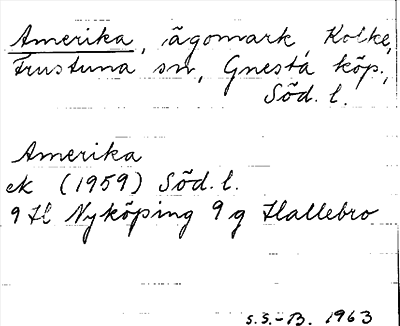 Amerika, ägomark, Kolke,
Frustuna sn, Gnesta köp.,
Söd. l.
Amerika
ek (1959) Söd. l.
9 H Nyköping 9 g Hallebro
S.S.-B. 1963